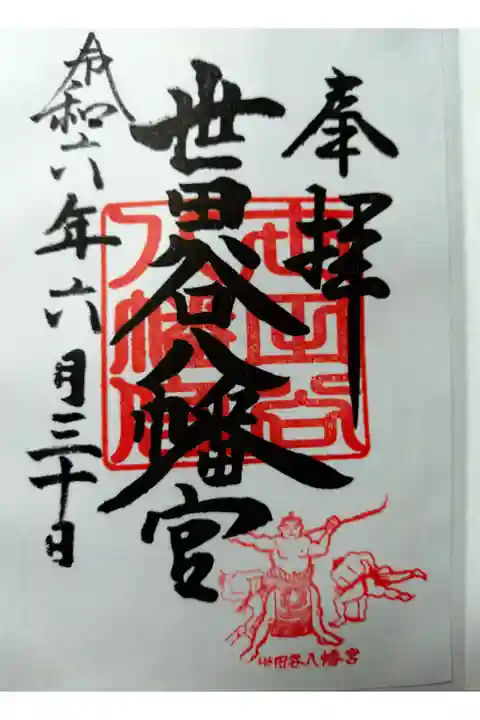 奉拝
世田谷八幡宮
令和六年六月三十日
世田谷
八幡宮
世田谷八幡宮